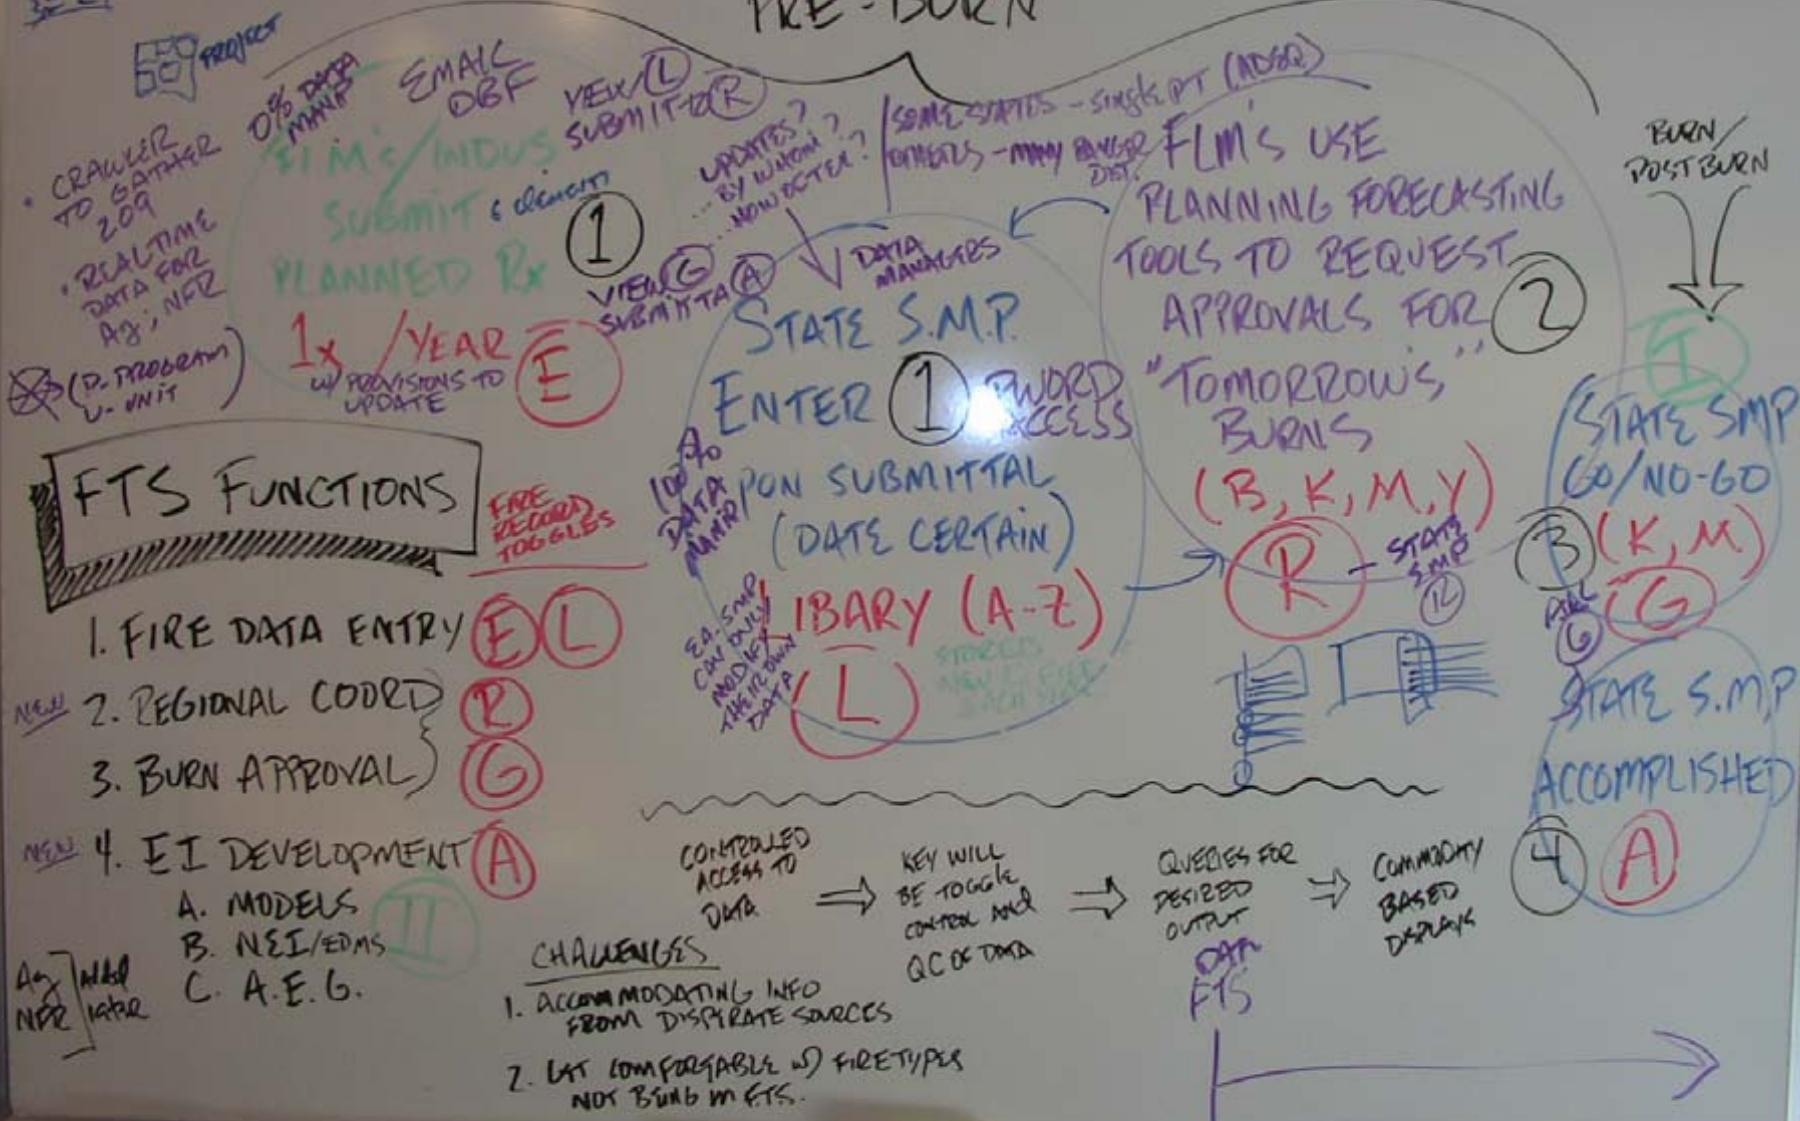 PRE-BURN
PROJECT
• CRAWLER
TO GATHER
209
• REALTIME
DATA FOR
Ag; NFR
(P- PROGRAM
U- UNIT)
0% DATA
MANP
EMAIL
DBF
VIEW L
SUBMIT R
SUBMIT
PLANNED Rx
1
1x /YEAR
W/ PROVISIONS TO
UPDATE
E
VIEW G
A
UPDATES?
... BY WHOM?
... HOW OFTEN?
SOME STATES - SINGLE PT (ADEQ)
OTHERS - MANY RANGER
DIST.
DATA
MANAGERS
STATE S.M.P.
ENTER 1 PWORD
ACCESS
100%
DATA
MANP
PON SUBMITTAL
(DATE CERTAIN)
LIBARY (A-Z)
L
EA. SMP
CAN ONLY
MODIFY
THEIR OWN
DATA
FLM'S USE
PLANNING FORECASTING
TOOLS TO REQUEST
APPROVALS FOR 2
"TOMORROW'S"
BURNS
(B, K, M, Y)
R - STATE
SMP
R
BURN/
POSTBURN
I
STATE SMP
GO/NO-GO
3 (K, M)
G
G
STATE S.M.P
ACCOMPLISHED
4 A
FTS FUNCTIONS
FIRE
RECORD
TOGGLES
1. FIRE DATA ENTRY E L
NEW 2. REGIONAL COORD R
3. BURN APPROVAL G
NEW 4. EI DEVELOPMENT A
A. MODELS
B. NEI/EDMS
C. A.E.G.
II
Ag
NFR
CONTROLLED
ACCESS TO
DATA
KEY WILL
BE TOGGLE
CONTROL AND
QC OF DATA
QUERIES FOR
DESIRED
OUTPUT
COMMODITY
BASED
DISPLAYS
CHALLENGES
1. ACCOMMODATING INFO
FROM DISPERATE SOURCES
2. GET COMFORTABLE W) FIRETYPES
NOT BEING IN FTS.
FTS